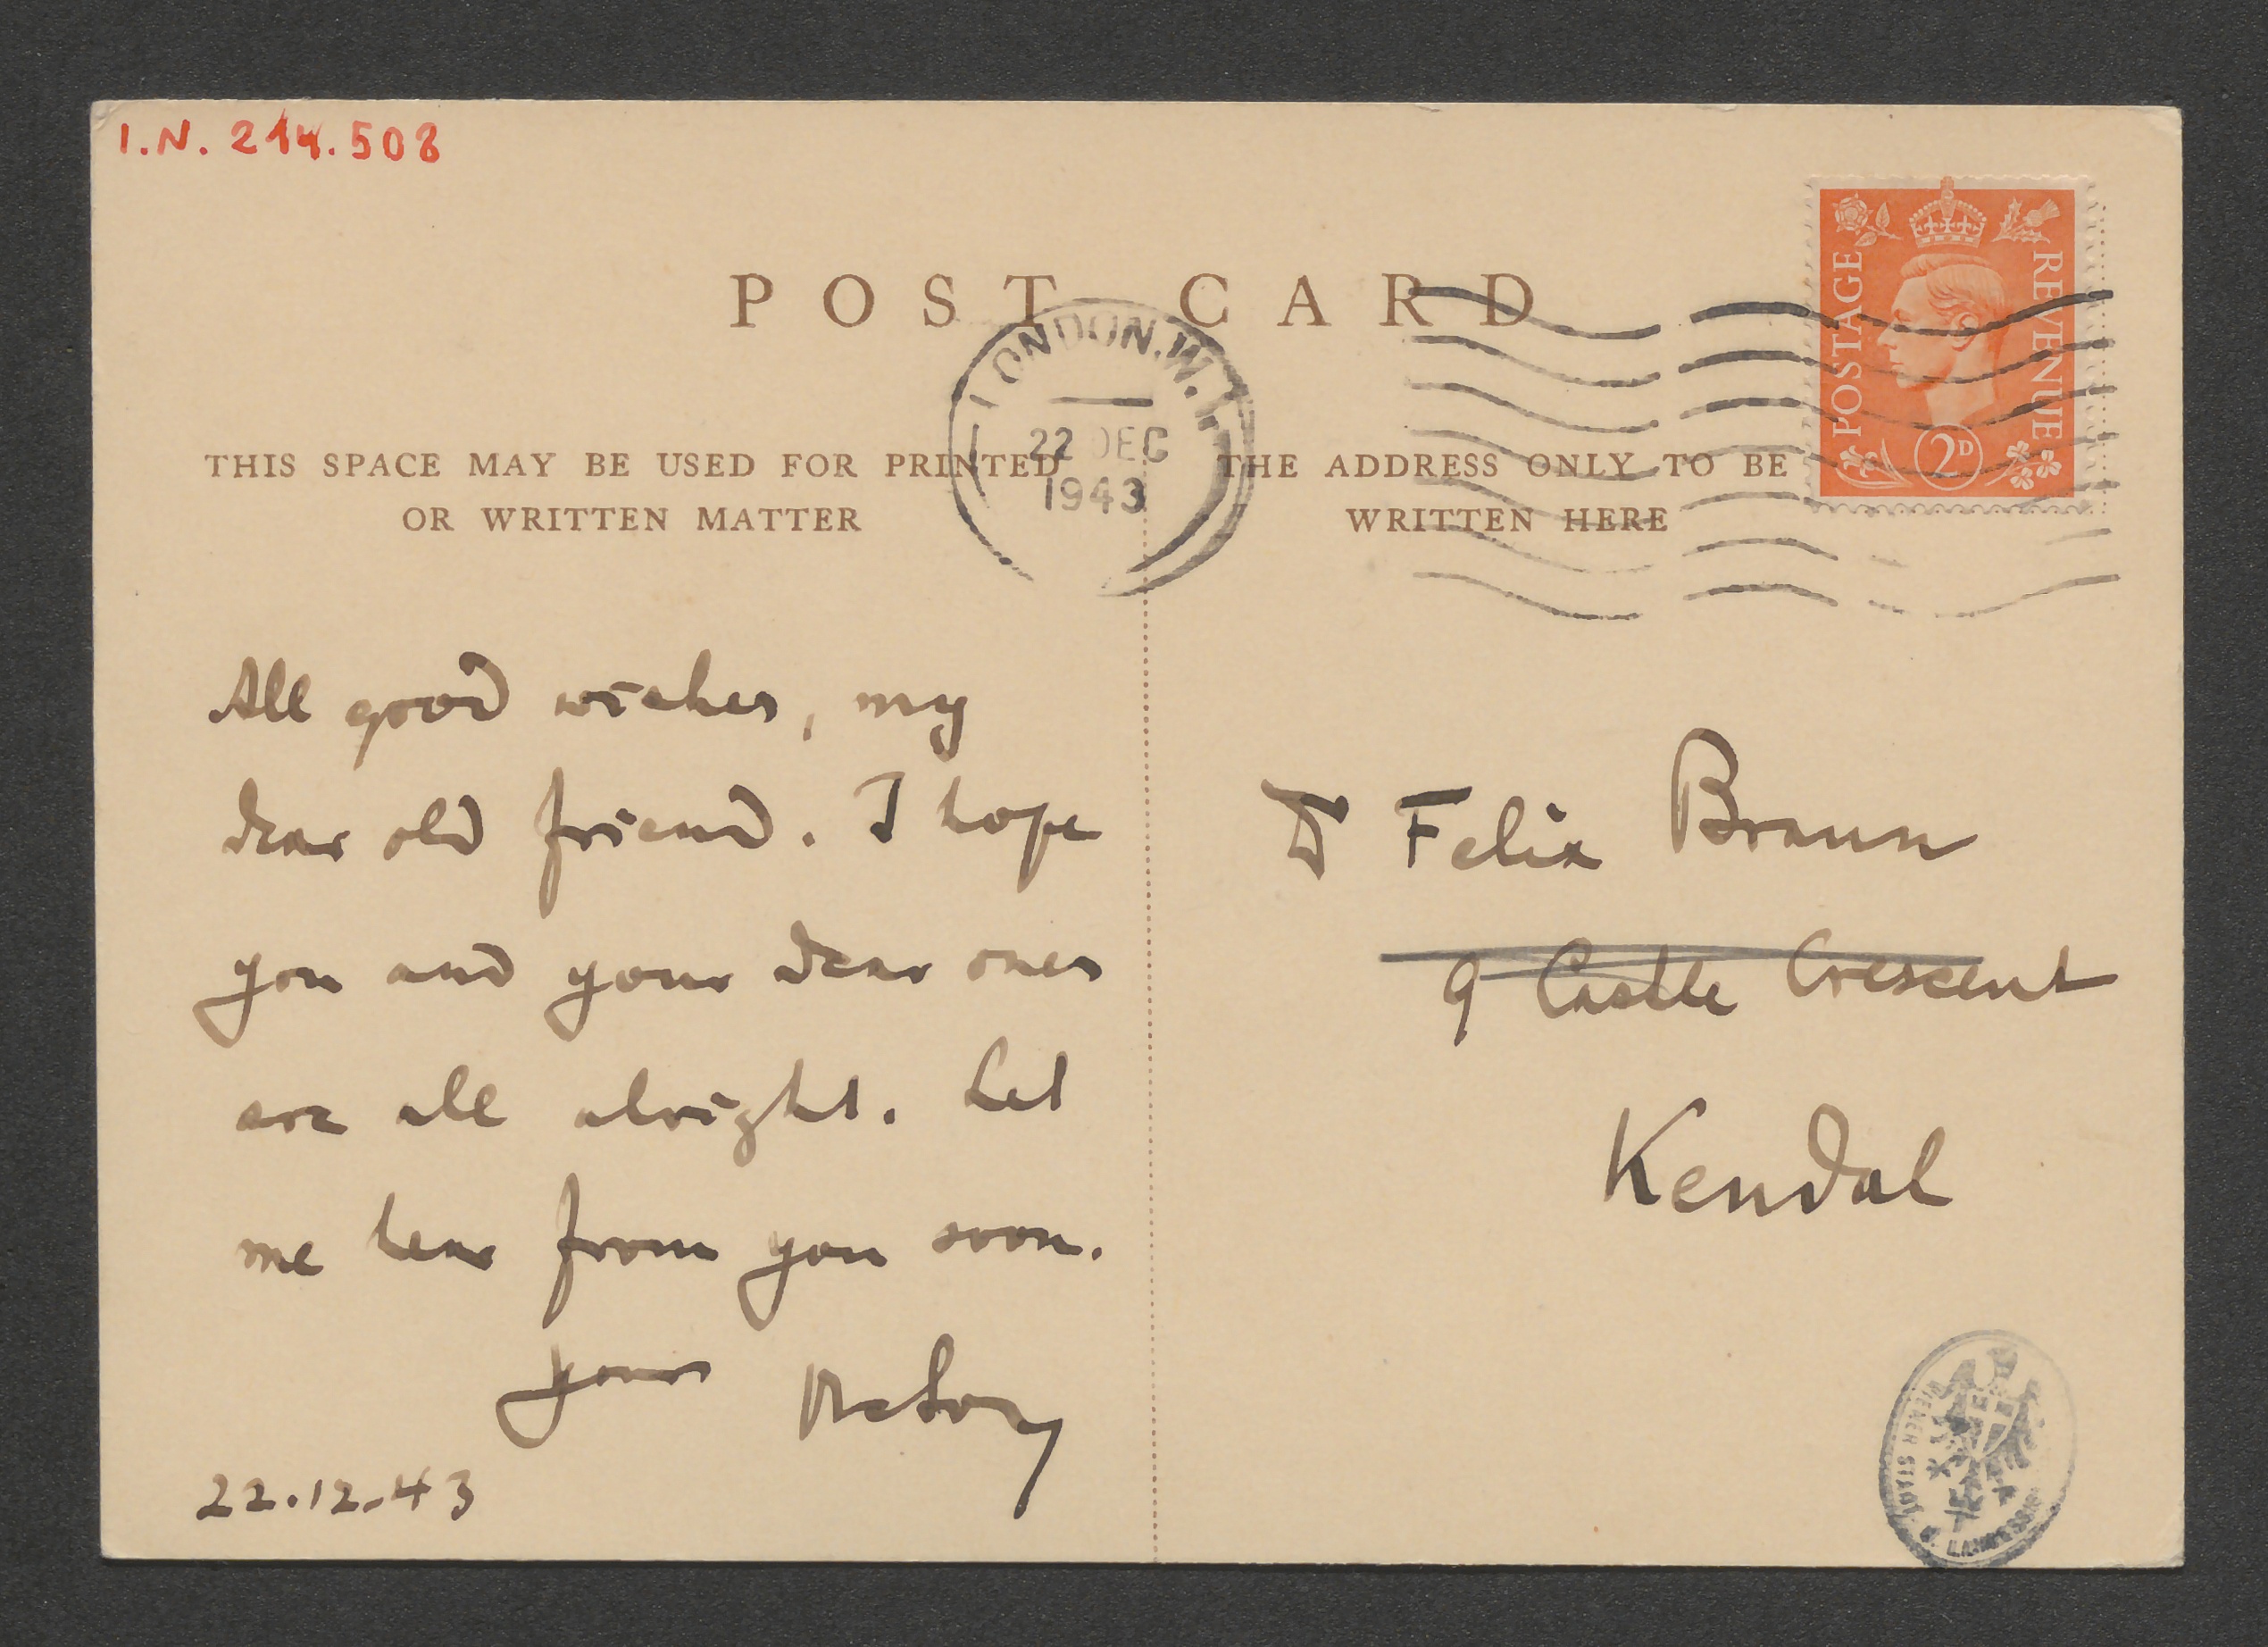 I.N. 214.508
POST CARD
LONDON.W.1
22 DEC
1943
POSTAGE
REVENUE
2D
THIS SPACE MAY BE USED FOR PRINTED
OR WRITTEN MATTER
THE ADDRESS ONLY TO BE
WRITTEN HERE
All good wishes, my
dear old friend. I hope
you and your dear ones
are all alright. Let
me hear from you soon.
yours
22.12.43
Dr Felix Braun
9 Castle Crescent
Kendal
WIENER STADT